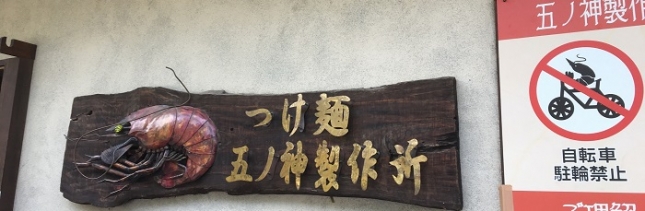 つけ麺
五ノ神製作所
五ノ神製作
自転車
駐輪禁止
ご理解